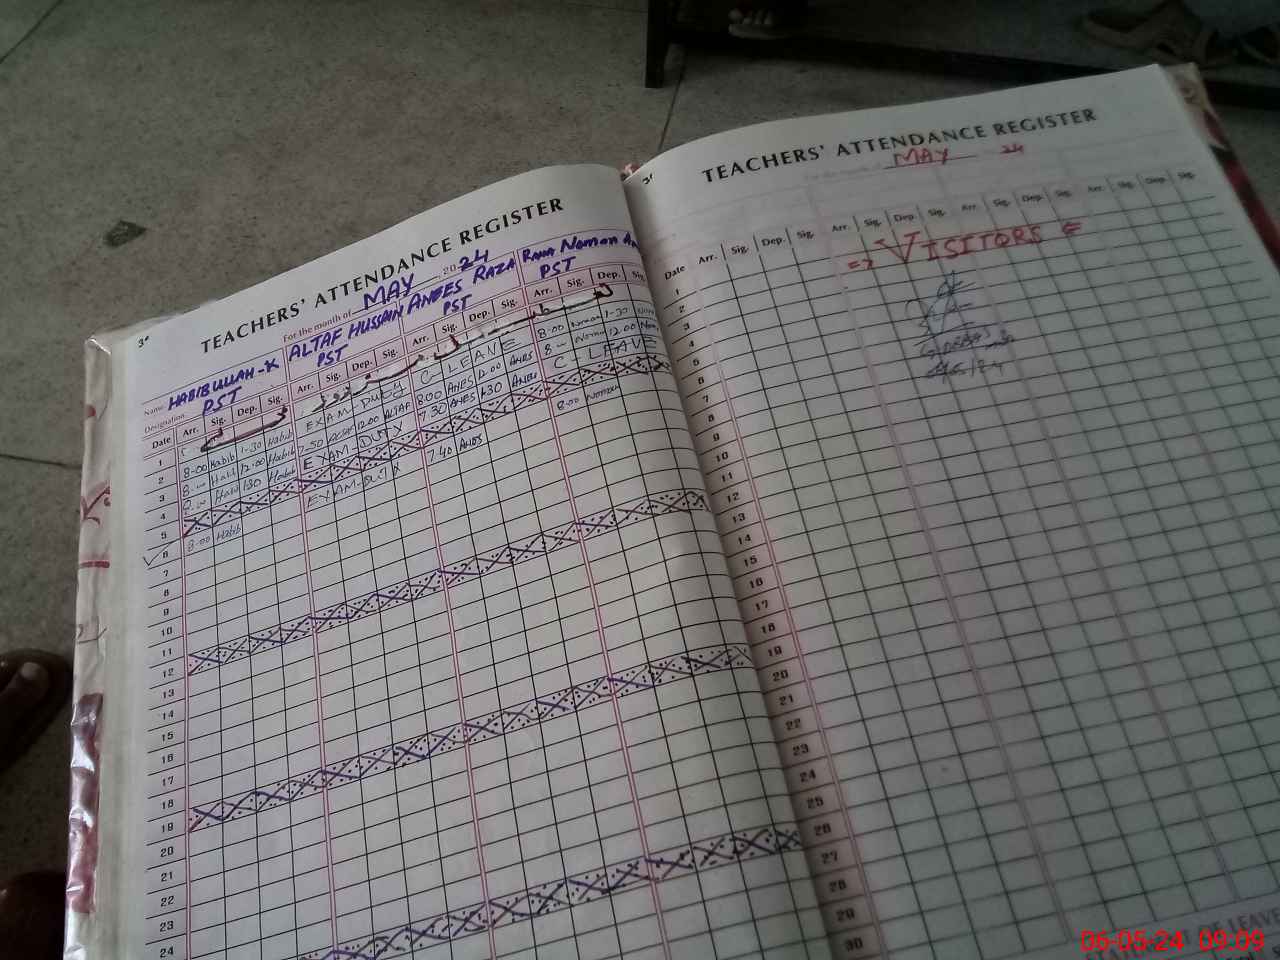 3
TEACHERS' ATTENDANCE REGISTER
For the month of MAY 20 24
Name HABIBULLAH-K ALTAF HUSSAIN ANEES RAZA RANA NOMAN
Designation PST PST PST PST
Date Arr. Sig. Dep. Sig. Arr. Sig. Dep. Sig. Arr. Sig. Dep. Sig. Arr. Sig. Dep. Sig.
1
2 8-00 Habib 1-30 Habib EXAM-DUTY C-LEAVE 8-00 Noman 1-30
3 8- Habib 12.00 Habib 7-50 12.00 ALTAF 8:00 ANES 12.00 ANES 8- Noman 12.00
4 Habib 1-30 Habib EXAM-DUTY 7.30 ANES 1-30 ANES C-LEAVE
5
6 8-00 Habib EXAM-DUTY 7.40 ANES 8.00 Noman
7
8
9
10
11
12
13
14
15
16
17
18
19
20
21
22
23
24
3
TEACHERS' ATTENDANCE REGISTER
For the month of MAY 24
Date Arr. Sig. Dep. Sig. Arr. Sig. Dep. Sig. Arr. Sig. Dep. Sig. Arr. Sig. Dep. Sig.
=> VISITORS <=
1
2
3
4
5
6
7
8
9
10
11
12
13
14
15
16
17
18
19
20
21
22
23
24
25
26
27
28
29
30
LEAVE
06-05-24 09:09